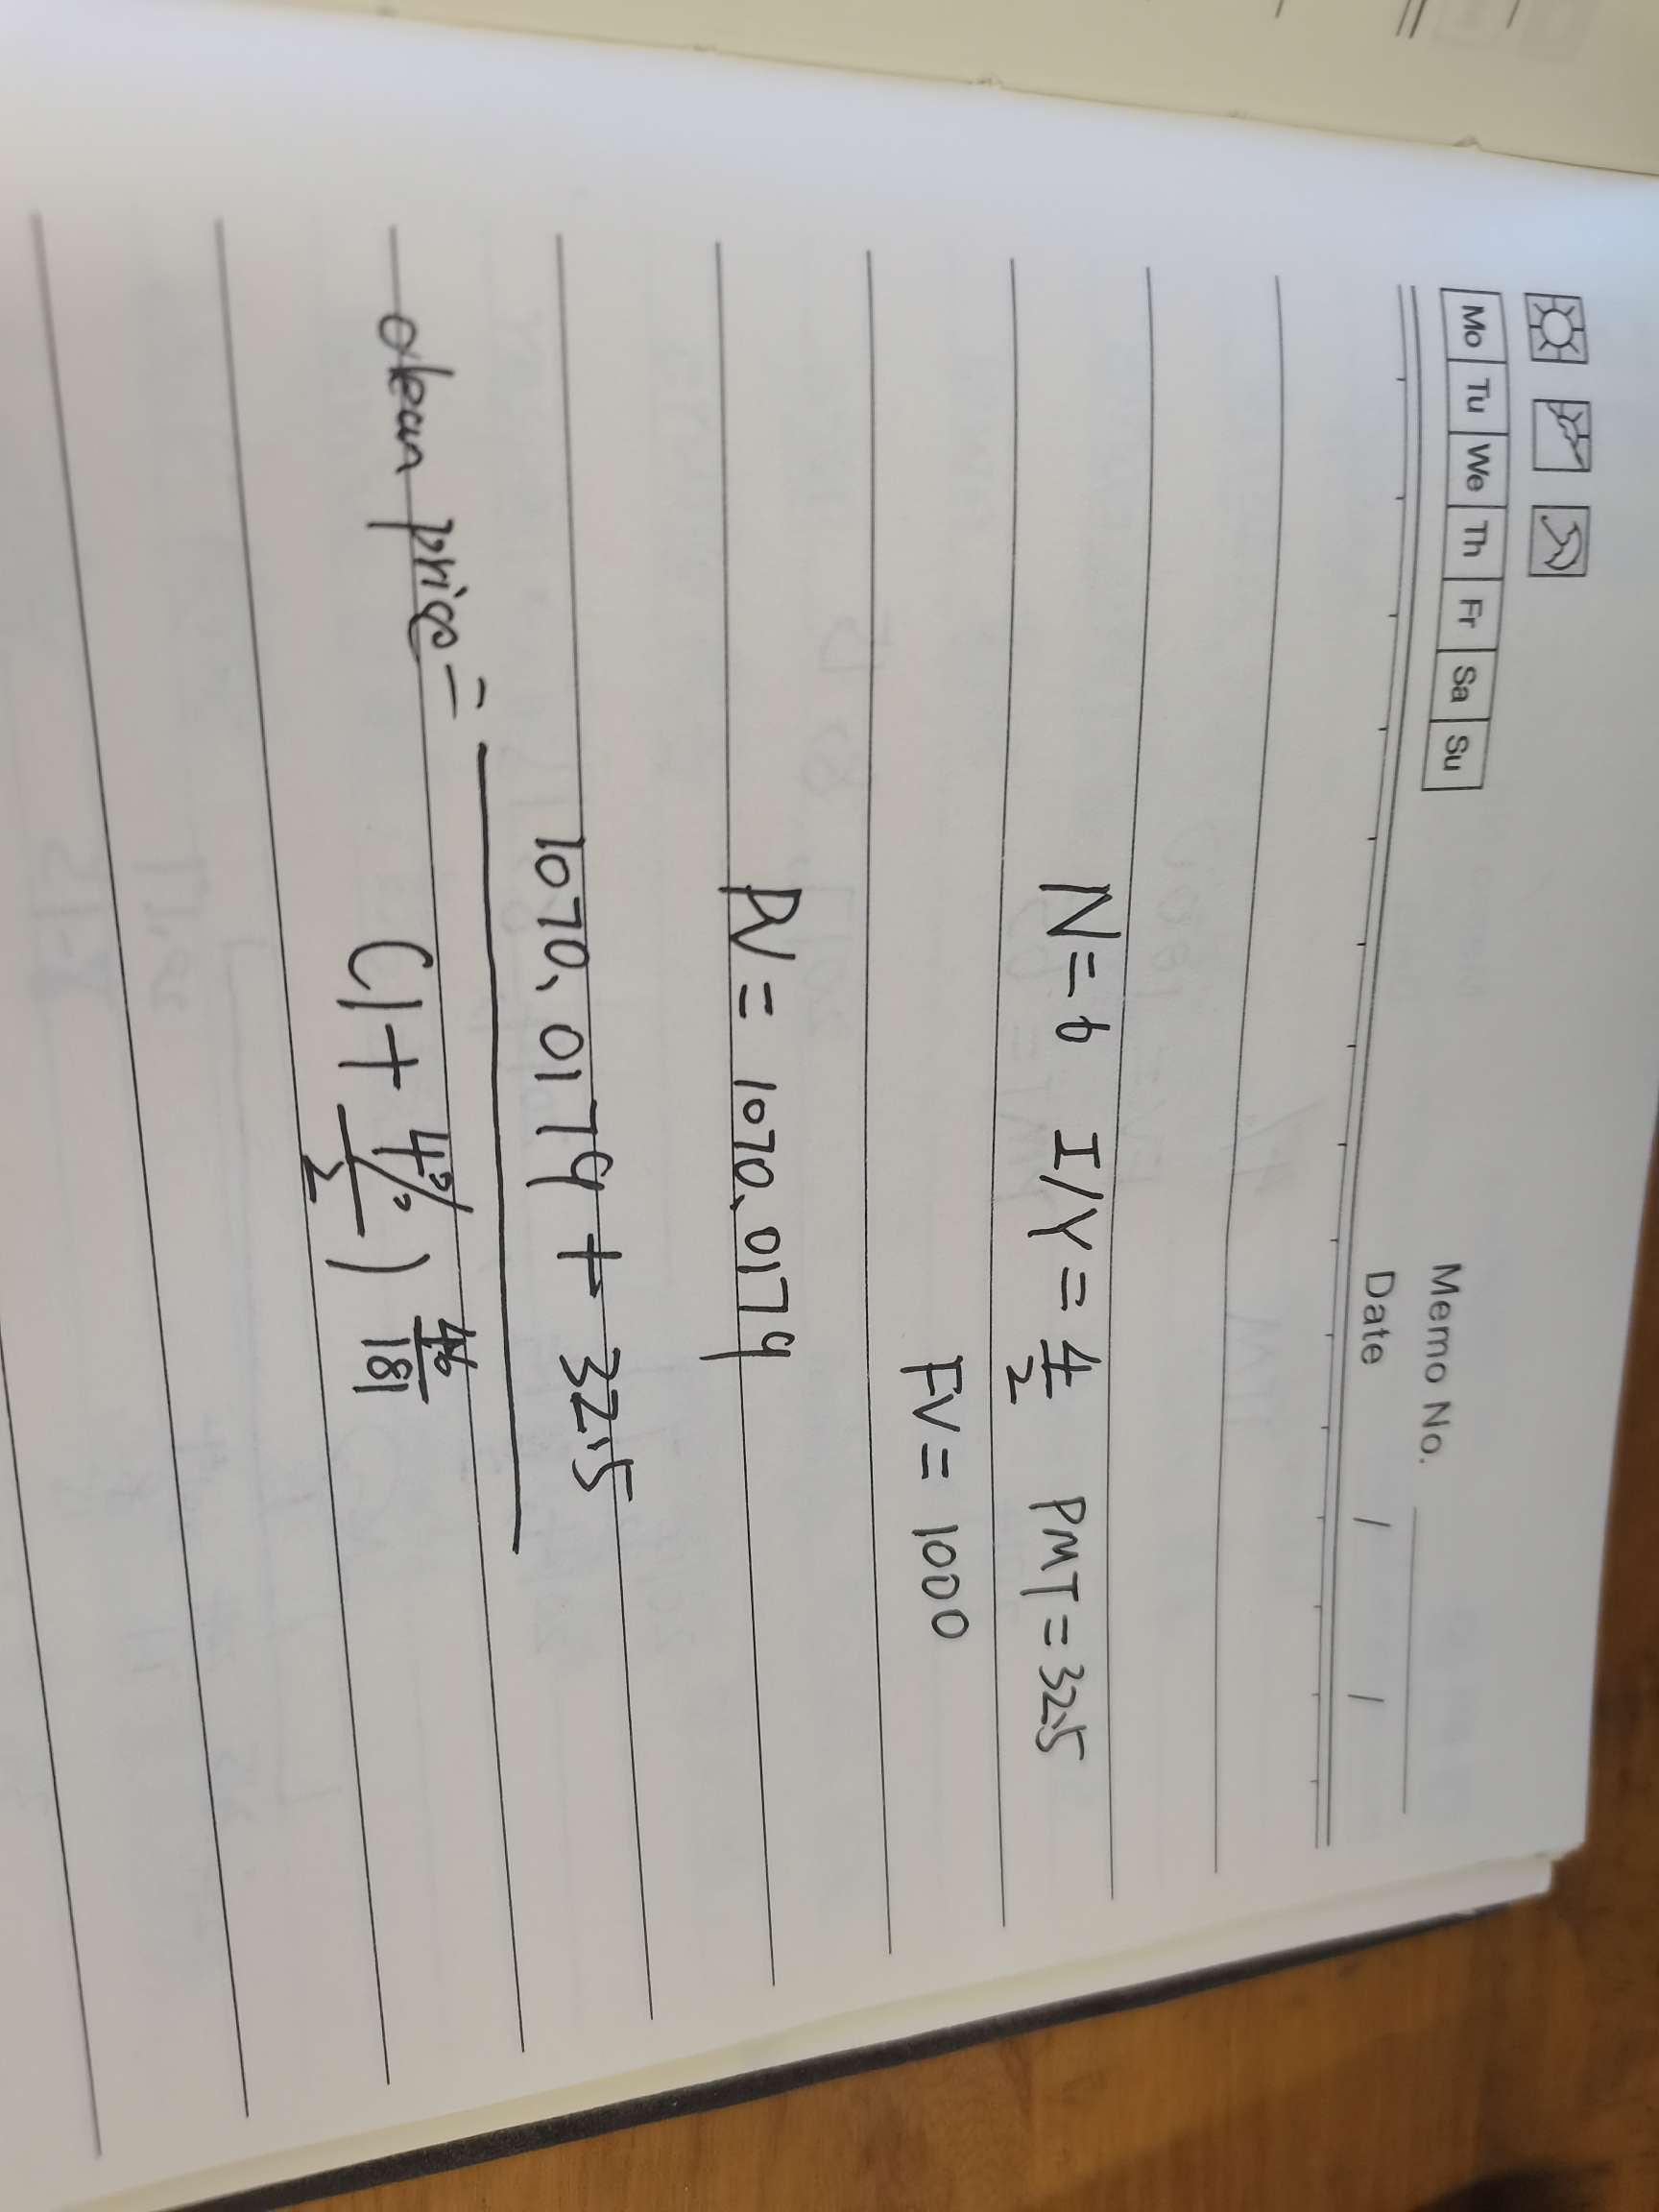 Mo Tu We Th Fr Sa Su
Memo No.
Date / /
N = 6 I/Y = 4/2 PMT = 32.5
FV = 1000
PV = 1070.0179
1070.0179 + 32.5
clean price =
(1 + 4%/2) 46/181